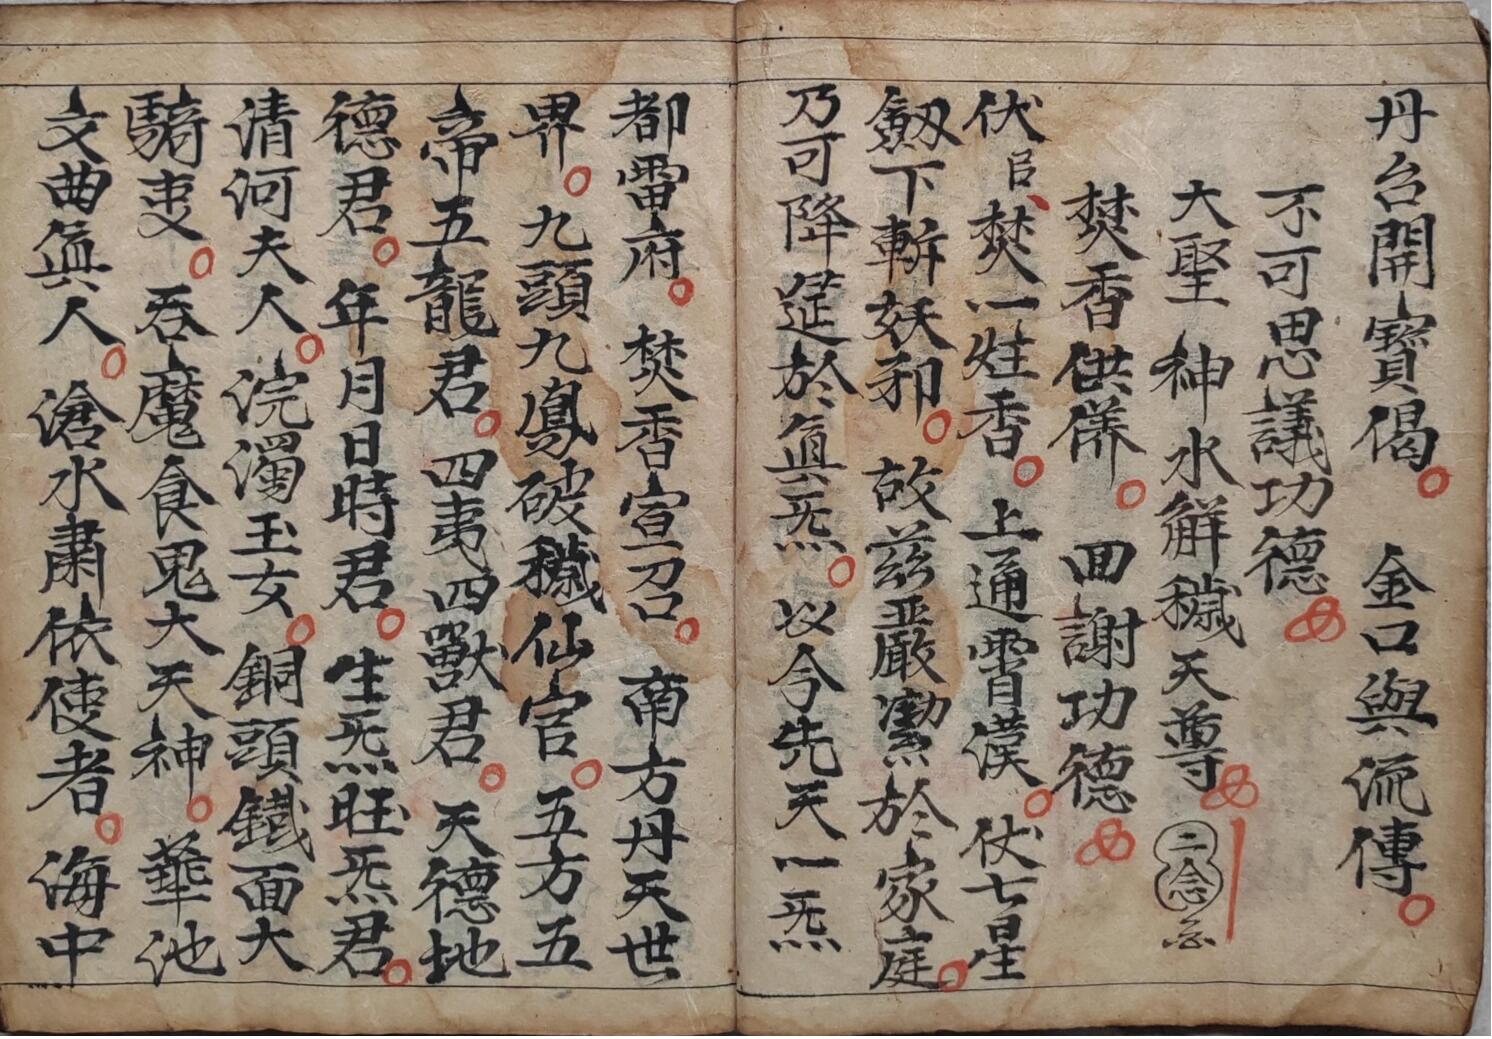 丹台開寶偈。金口與流傳。
不可思議功德
大聖神水解穢天尊 二念 忩
焚香供养。回謝功德
伏㠯、焚一炷香。上通霄漢。仗七星
劔下斬妖邪。故兹嚴潔於家庭。
乃可降筵於真炁。以今先天一炁
都雷府。焚香宣召。南方丹天世
界。九頭九鳳破穢仙官。五方五
帝五龍君。四夷四獸君。天德地
德君。年月日時君。生炁旺炁君。
清河夫人。浣濁玉女。銅頭鐵面大
騎吏。吞魔食鬼大天神。華池
文曲真人。滄水肅依使者。海中